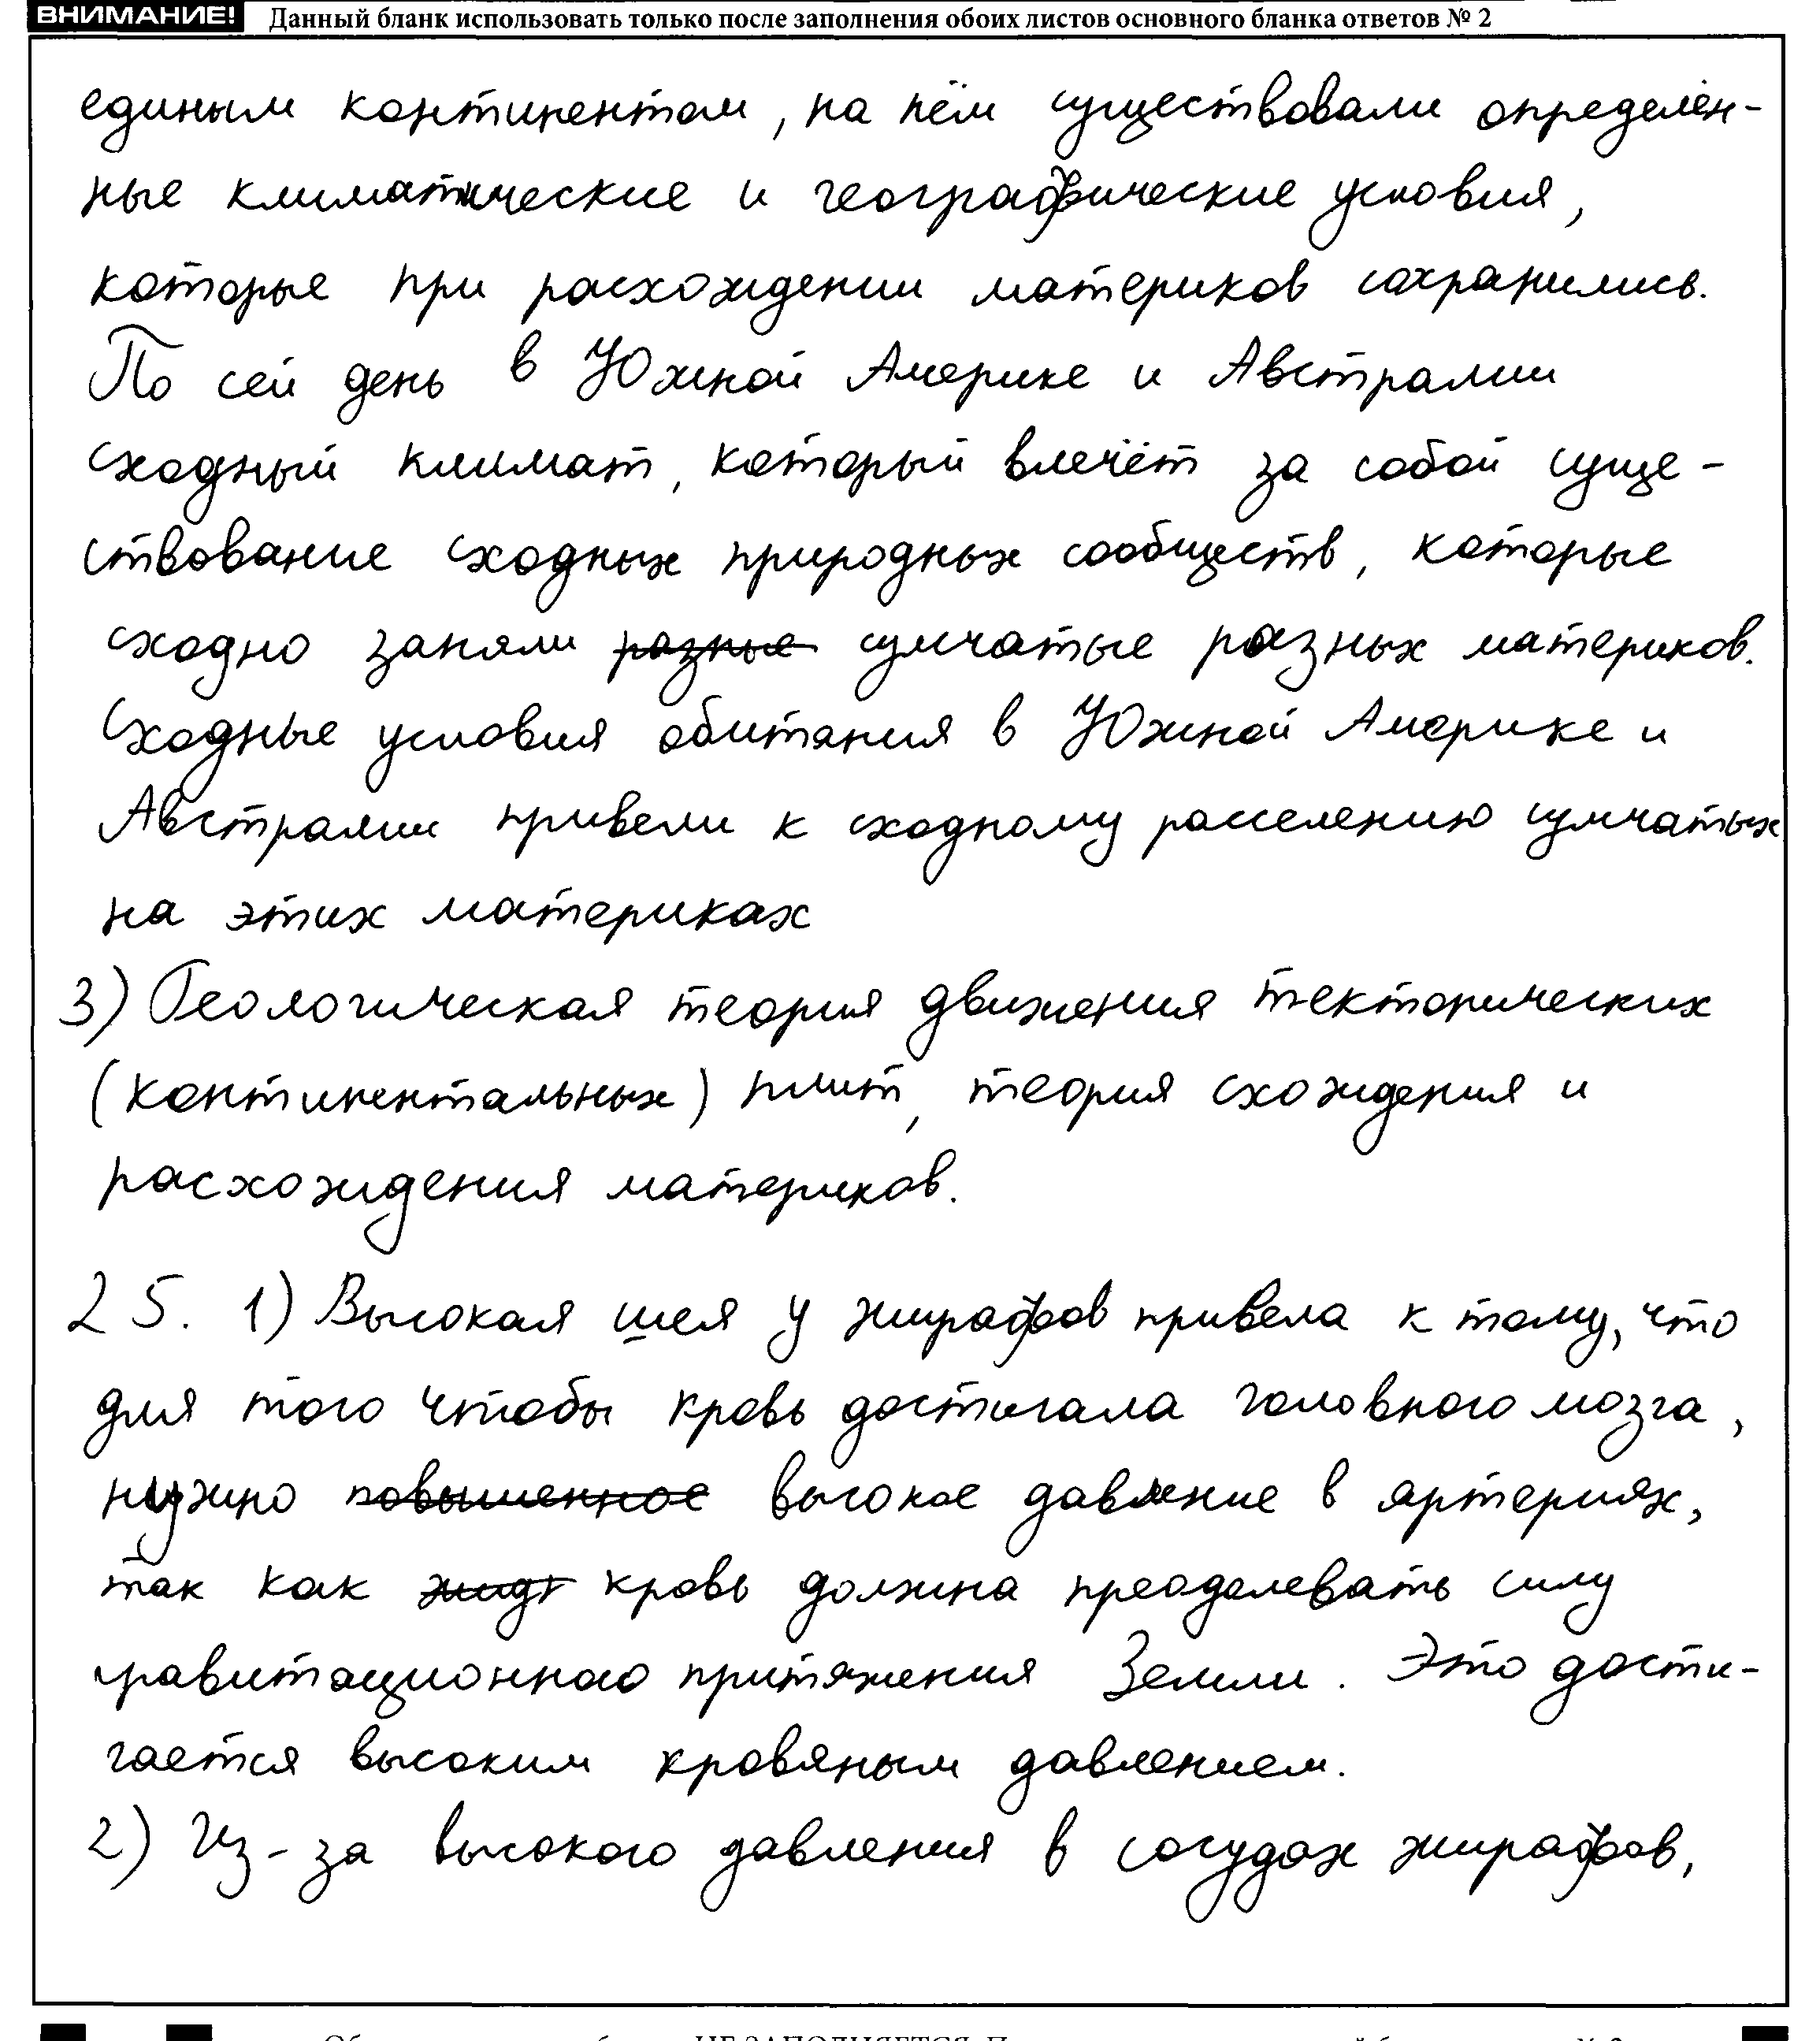 ВНИМАНИЕ! Данный бланк использовать только после заполнения обоих листов основного бланка ответов № 2
единым континентом, на нём существовали определён-
ные климатические и географические условия,
которые при расхождении материков сохранились.
По сей день в Южной Америке и Австралии
сходный климат, который влечёт за собой суще-
ствование сходных природных сообществ, которые
сходно заняли разные сумчатые разных материков.
Сходные условия обитания в Южной Америке и
Австралии привели к сходному расселению сумчатых
на этих материках
3) Геологическая теория движения тектонических
(континентальных) плит, теория схождения и
расхождения материков.
25. 1) Высокая шея у жирафов привела к тому, что
для того чтобы кровь достигала головного мозга,
нужно повышенное высокое давление в артериях,
так как жидк кровь должна преодолевать силу
гравитационного притяжения Земли. Это дости-
гается высоким кровяным давлением.
2) Из-за высокого давления в сосудах жирафов,
НЕ ЗАПОЛНЯЕТСЯ